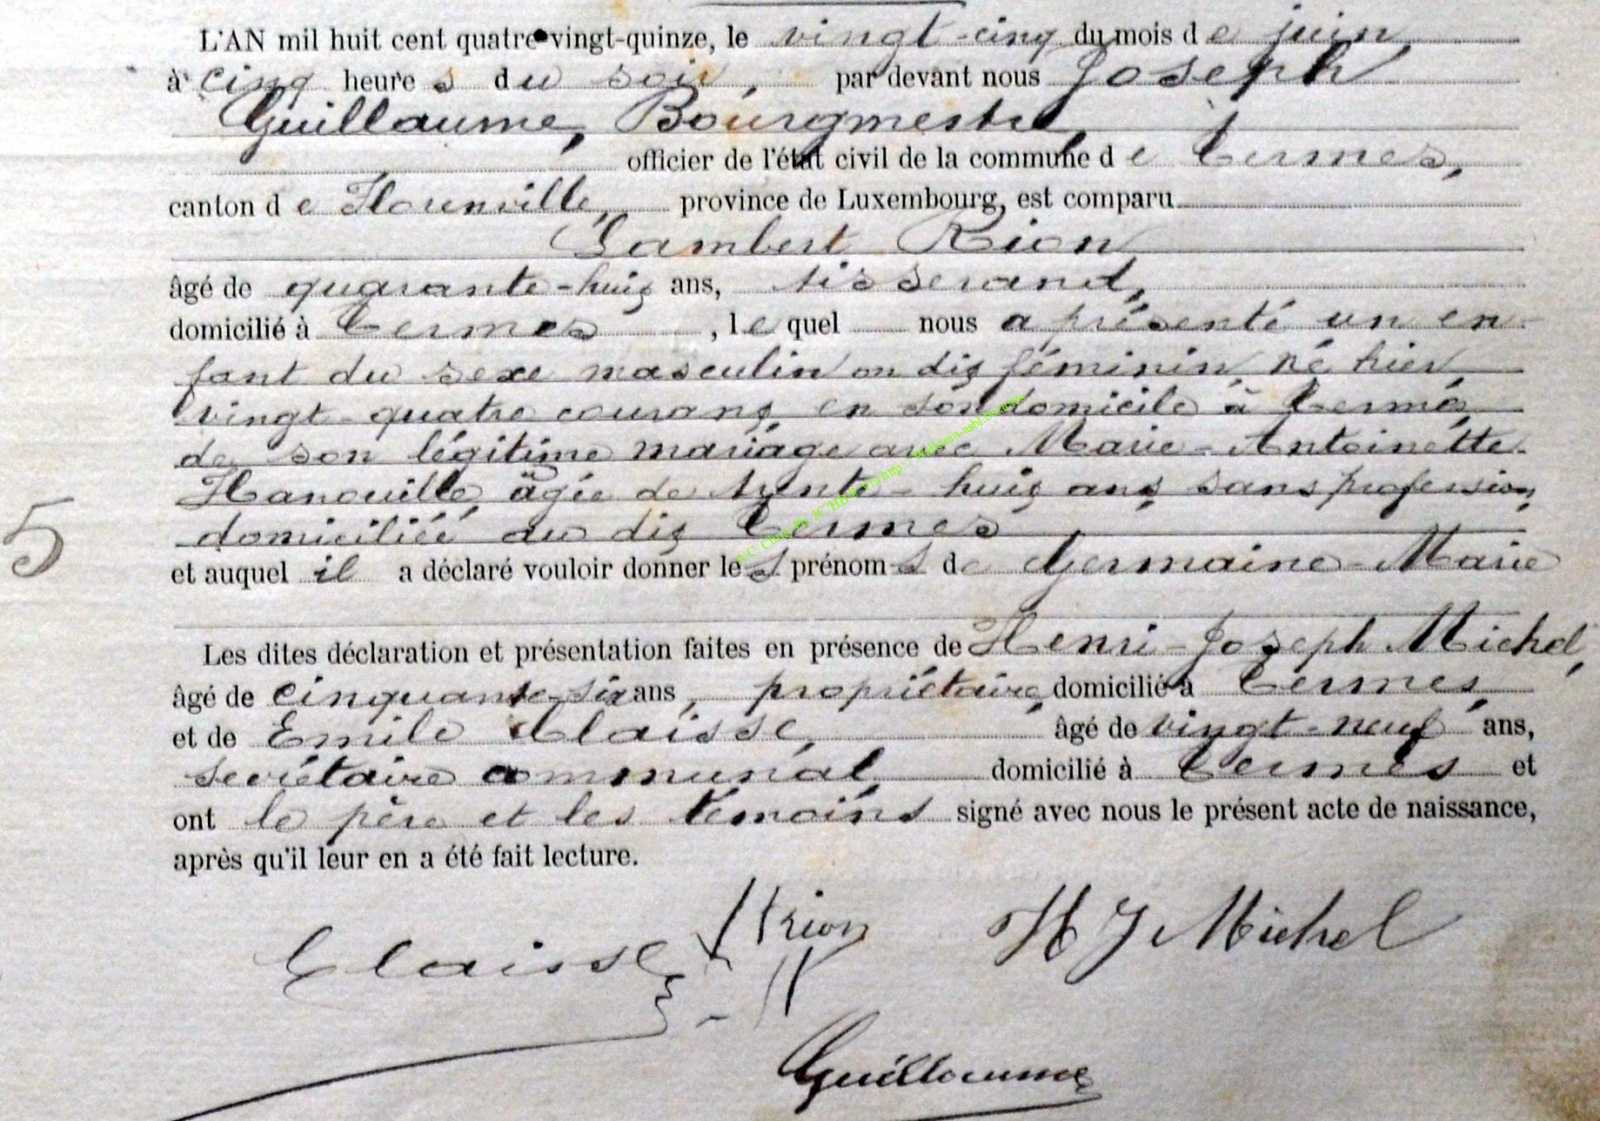 L'AN mil huit cent quatre-vingt-quinze, le vingt-cinq du mois de juin
à cinq heures du soir, par devant nous Joseph
Guillaume, Bourgmestre,
officier de l'état civil de la commune de Termes,
canton de Florenville, province de Luxembourg, est comparu
Lambert Rion
âgé de quarante-huit ans, tisserand,
domicilié à Termes, lequel nous a présenté un en-
fant du sexe masculin ou dit féminin, né hier
vingt-quatre courant en son domicile à Termes,
de son légitime mariage avec Marie-Antoinette
Hanouille, âgée de trente-huit ans sans profession,
domiciliée au dit Termes
5
et auquel il a déclaré vouloir donner les prénoms de Germaine-Marie
Les dites déclaration et présentation faites en présence de Henri-Joseph Michel,
âgé de cinquante-six ans, propriétaire, domicilié à Termes,
et de Emile Claisse, âgé de vingt-neuf ans,
secrétaire communal domicilié à Termes et
ont le père et les témoins signé avec nous le présent acte de naissance,
après qu'il leur en a été fait lecture.
Claisse Rion H J Michel
Guillaume